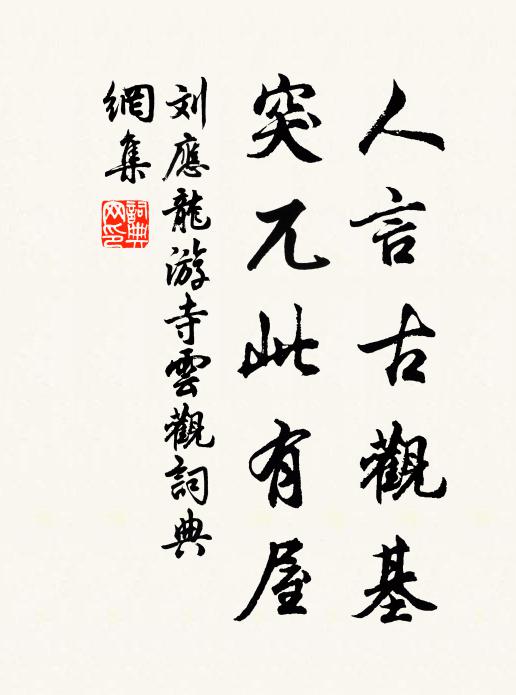 人言古觀基
突兀此有屋
刘應龍游寺雲觀詞典
網集
詞典
网印